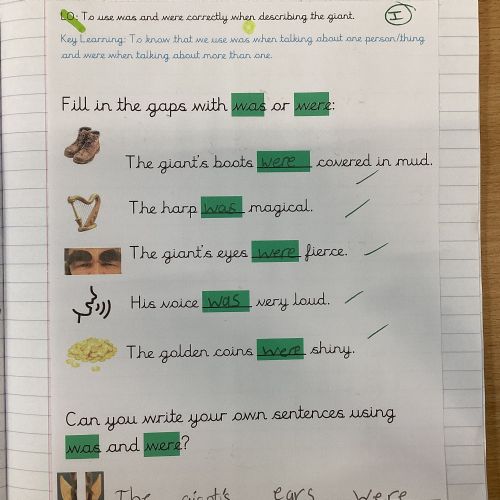 LO: To use was and were correctly when describing the giant.
I
Key Learning: To know that we use was when talking about one person/thing
and were when talking about more than one.
Fill in the gaps with was or were:
The giant's boots were covered in mud.
The harp was magical.
The giant's eyes were fierce.
His voice was very loud.
The golden coins were shiny.
Can you write your own sentences using
was and were?
The giant's ears were